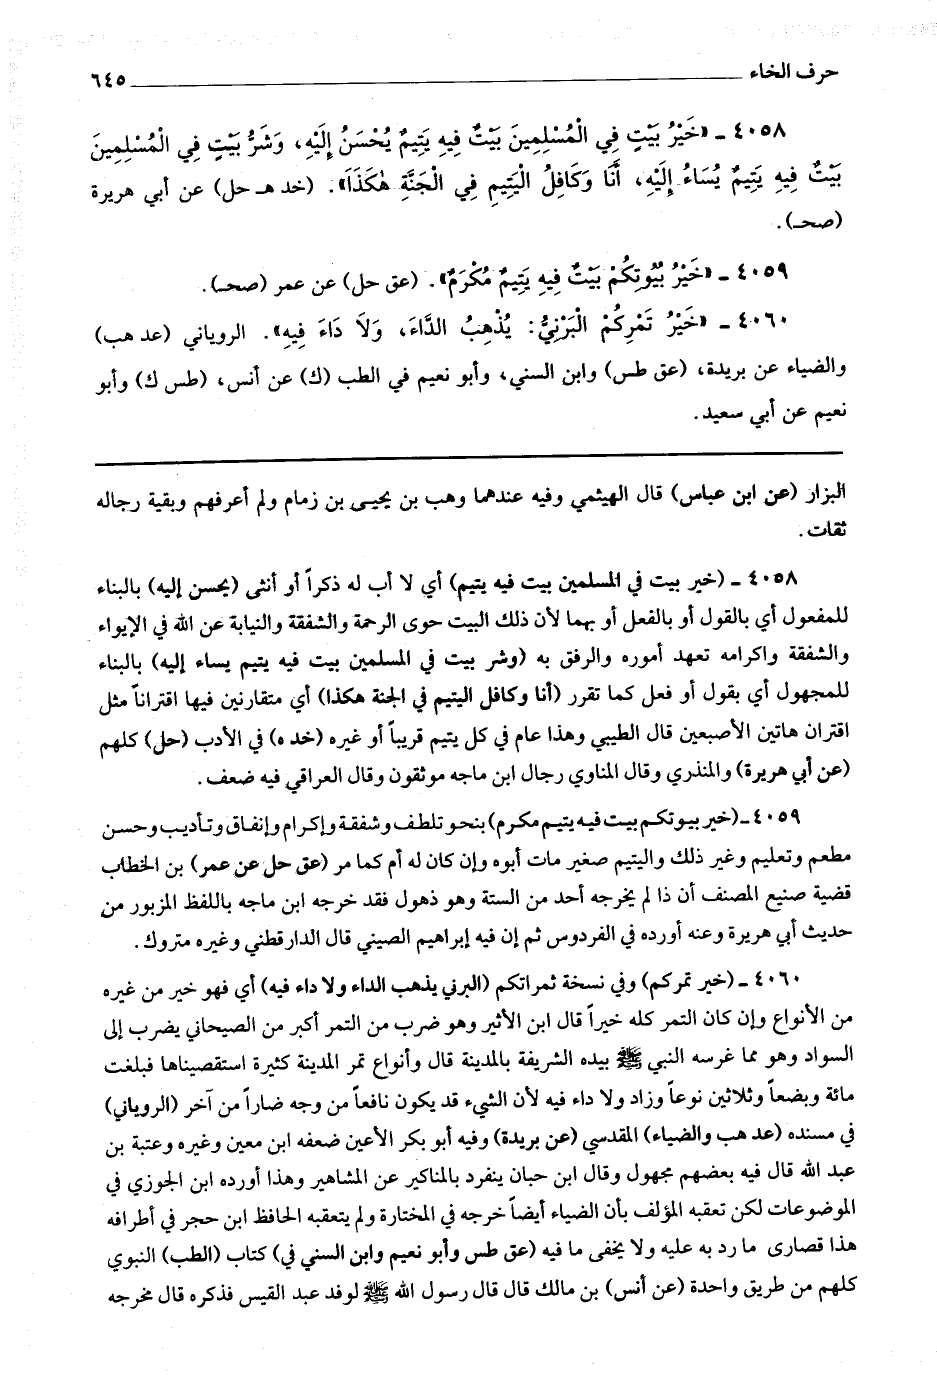 حرف الخاء ٦٤٥
٤٠٥٨ ـ «خَيْرُ بَيْتٍ فِي الْمُسْلِمِينَ بَيْتٌ فِيهِ يَتِيمٌ يُحْسَنُ إِلَيْهِ، وَشَرُّ بَيْتٍ فِي الْمُسْلِمِينَ
بَيْتٌ فِيهِ يَتِيمٌ يُسَاءُ إِلَيْهِ، أَنَا وَكَافِلُ الْيَتِيمِ فِي الْجَنَّةِ هٰكَذَا». (خد هـ حل) عن أبي هريرة
(صحـ).
٤٠٥٩ ـ «خَيْرُ بُيُوتِكُمْ بَيْتٌ فِيهِ يَتِيمٌ مُكْرَمٌ». (عق حل) عن عمر (صحـ).
٤٠٦٠ ـ «خَيْرُ تَمْرِكُمْ الْبَرْنِيُّ: يُذْهِبُ الدَّاءَ، وَلَا دَاءَ فِيهِ». الروياني (عد هب)
والضياء عن بريدة، (عق طس) وابن السني، وأبو نعيم في الطب (ك) عن أنس، (طس ك) وأبو
نعيم عن أبي سعيد.
البزار (عن ابن عباس) قال الهيثمي وفيه عندهما وهب بن يحيى بن زمام ولم أعرفهم وبقية رجاله
ثقات.
٤٠٥٨ ـ (خير بيت في المسلمين بيت فيه يتيم) أي لا أب له ذكراً أو أنثى (يحسن إليه) بالبناء
للمفعول أي بالقول أو بالفعل أو بهما لأن ذلك البيت حوى الرحمة والشفقة والنيابة عن الله في الإيواء
والشفقة واكرامه تعهد أموره والرفق به (وشر بيت في المسلمين بيت فيه يتيم يساء إليه) بالبناء
للمجهول أي بقول أو فعل كما تقرر (أنا وكافل اليتيم في الجنة هكذا) أي متقارنين فيها اقتراناً مثل
اقتران هاتين الأصبعين قال الطيبي وهذا عام في كل يتيم قريباً أو غيره (خد ه) في الأدب (حل) كلهم
(عن أبي هريرة) والمنذري وقال المناوي رجال ابن ماجه موثقون وقال العراقي فيه ضعف.
٤٠٥٩ ـ (خير بيوتكم بيت فيه يتيم مكرم) بنحو تلطف وشفقة وإكرام وإنفاق وتأديب وحسن
مطعم وتعليم وغير ذلك واليتيم صغير مات أبوه وإن كان له أم كما مر (عق حل عن عمر) بن الخطاب
قضية صنيع المصنف أن ذا لم يخرجه أحد من الستة وهو ذهول فقد خرجه ابن ماجه باللفظ المزبور من
حديث أبي هريرة وعنه أورده في الفردوس ثم إن فيه إبراهيم الصيني قال الدارقطني وغيره متروك.
٤٠٦٠ ـ (خير تمركم) وفي نسخة ثمراتكم (البرني يذهب الداء ولا داء فيه) أي فهو خير من غيره
من الأنواع وإن كان التمر كله خيراً قال ابن الأثير وهو ضرب من التمر أكبر من الصيحاني يضرب إلى
السواد وهو مما غرسه النبي ﷺ بيده الشريفة بالمدينة قال وأنواع تمر المدينة كثيرة استقصيناها فبلغت
مائة وبضعاً وثلاثين نوعاً وزاد ولا داء فيه لأن الشيء قد يكون نافعاً من وجه ضاراً من آخر (الروياني)
في مسنده (عد هب والضياء) المقدسي (عن بريدة) وفيه أبو بكر الأعين ضعفه ابن معين وغيره وعتبة بن
عبد الله قال فيه بعضهم مجهول وقال ابن حبان ينفرد بالمناكير عن المشاهير وهذا أورده ابن الجوزي في
الموضوعات لكن تعقبه المؤلف بأن الضياء أيضاً خرجه في المختارة ولم يتعقبه الحافظ ابن حجر في أطرافه
هذا قصارى ما رد به عليه ولا يخفى ما فيه (عق طس وأبو نعيم وابن السني في) كتاب (الطب) النبوي
كلهم من طريق واحدة (عن أنس) بن مالك قال قال رسول الله ﷺ لوفد عبد القيس فذكره قال مخرجه